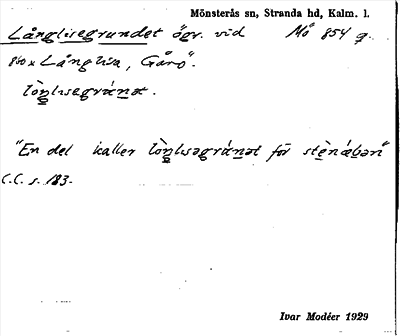 Mönsterås sn, Stranda hd, Kalm. l.
Långlisegrundet ögr. vid Mö 854 q.
850 x Långlisa, Gårö".
lòŋlɩsəgrɩ́nət.
"En del kaller lòŋlɩsəgrɩ́nət för
C.C. s. 183.
Ivar Modéer 1929